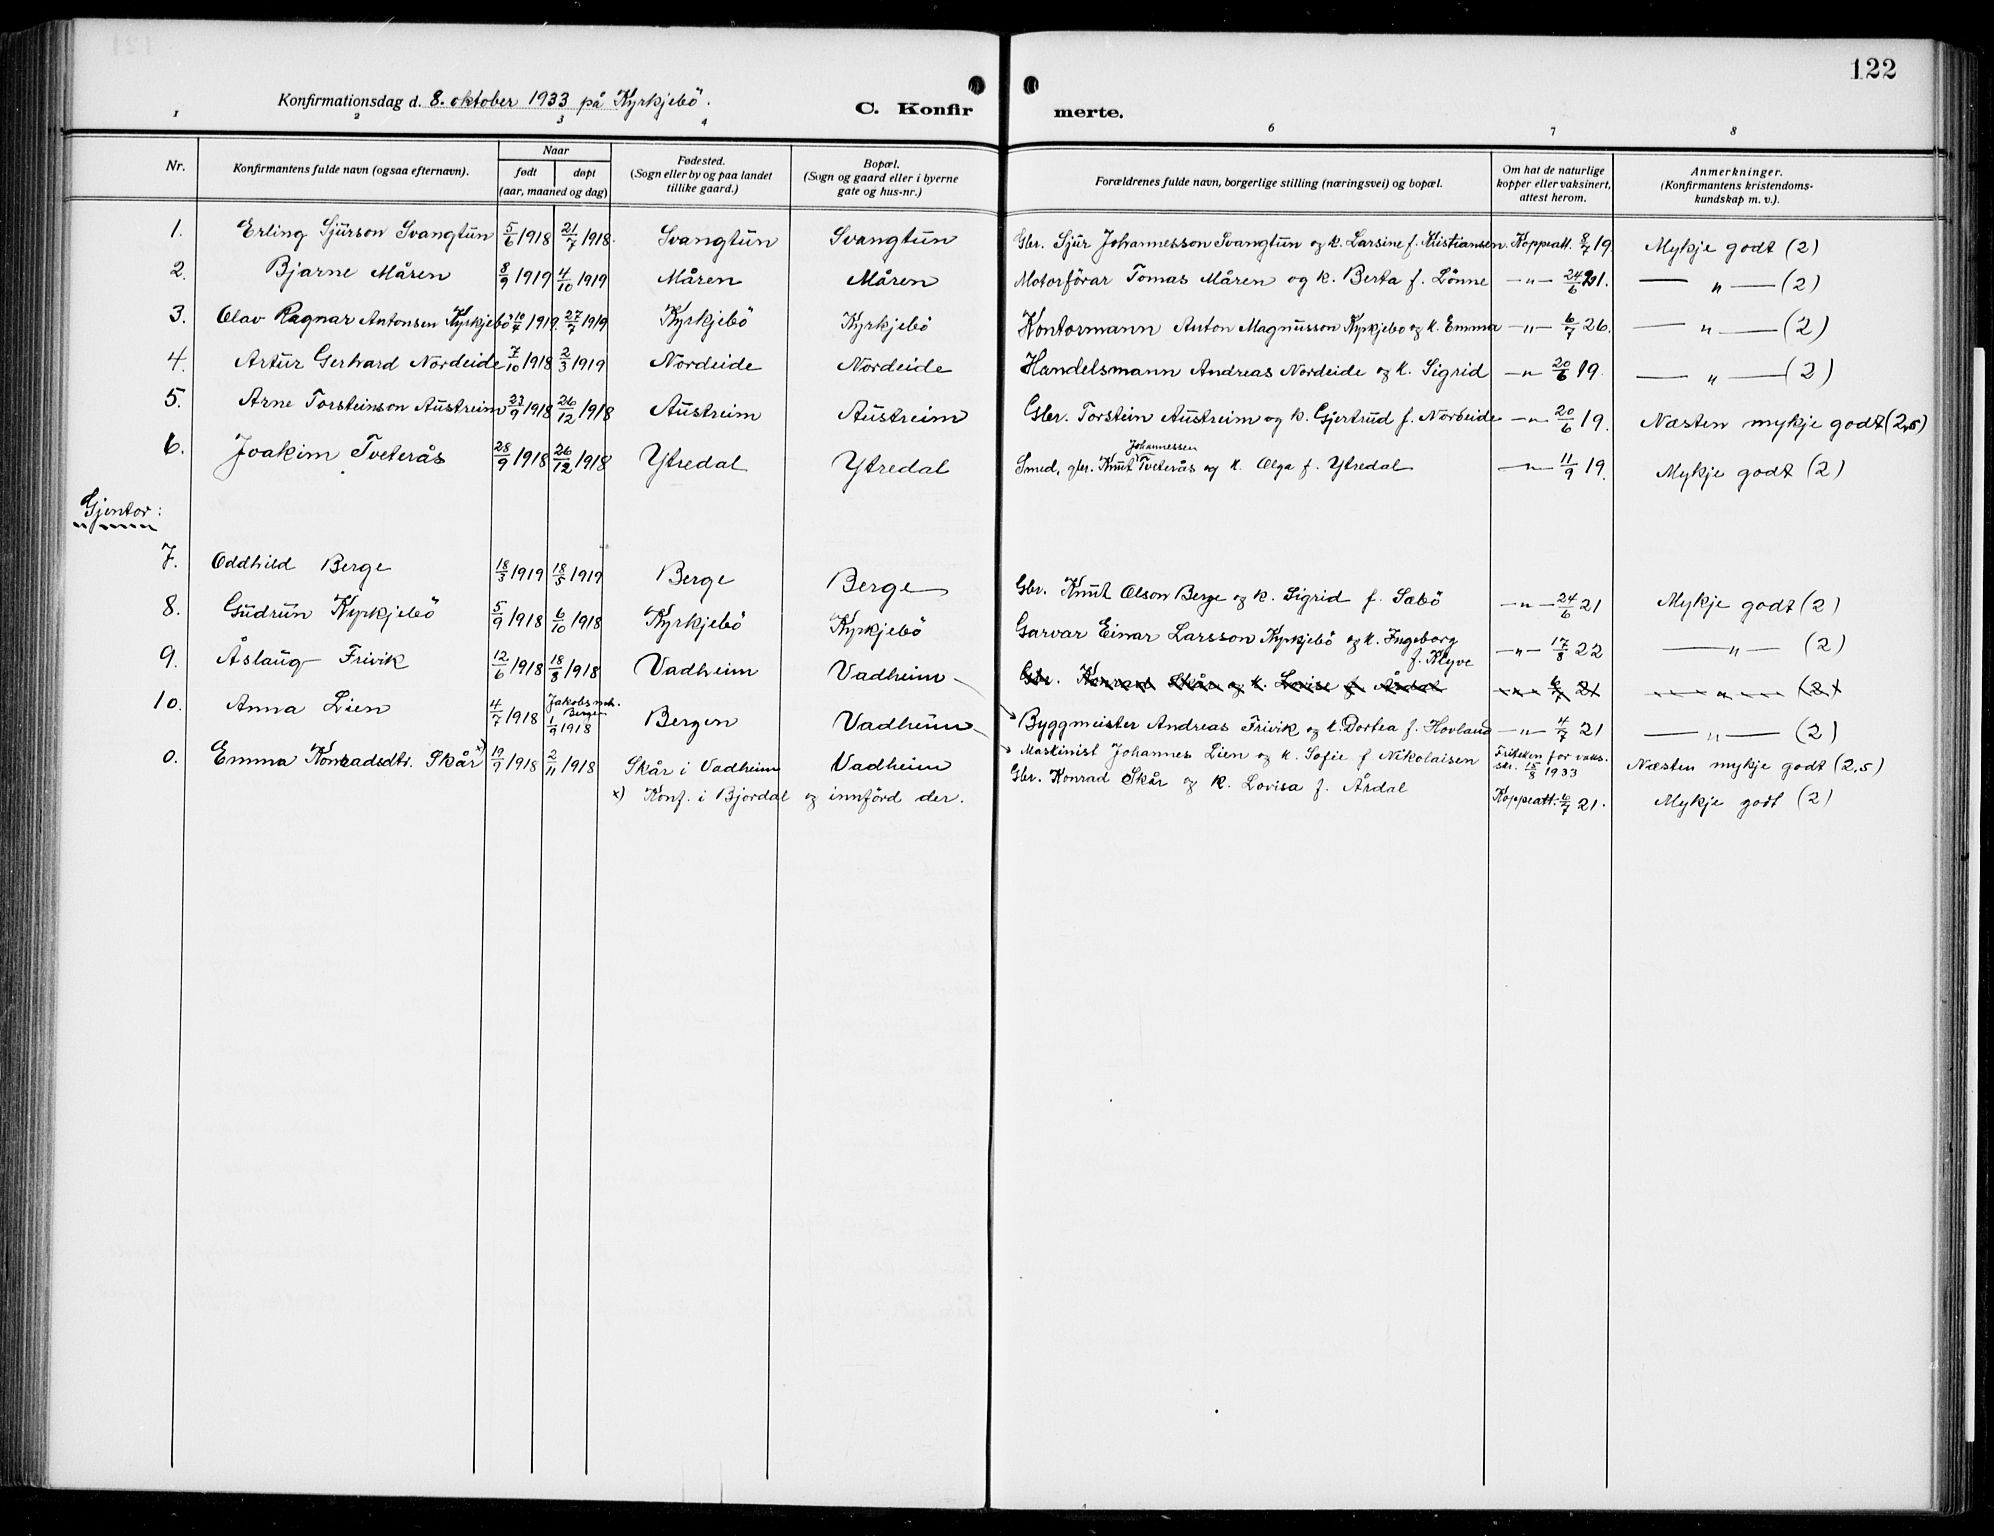 122
Konfirmationsdag d. 8. oktober 1933 på Kyrkjebö.
C. Konfir merte.
1 2 3 4 6 7 8
Nr. Konfirmantens fulde navn (ogsaa efternavn). Naar født døpt (aar, maaned og dag) Fødested. (Sogn eller by og paa landet tillike gaard.) Bopæl. (Sogn og gaard eller i byerne gate og hus-nr.) Forældrenes fulde navn, borgerlige stilling (næringsvei) og bopæl. Om hat de naturlige kopper eller vaksinert, attest herom. Anmerkninger. (Konfirmantens kristendoms-kundskap m. v.).
1. Erling Sjurson Svangtun 5/6 1918 21/7 1918. Svangtun Svangtun Gbr. Sjur Johannesson Svangtun og k. Larsine f. Kristiansen. Koppeatt. 8/7 19. Mykje godt (2)
2. Bjarne Måren 8/9 1919 4/10 1919 Måren Måren Motorförar Tomas Måren og k. Berta f. Lönne — " — 24/6 21. — " — (2)
3. Olav Ragnar Antonsen Kyrkjebö 10/7 1919. 27/7 1919 Kyrkjebö Kyrkjebö Kontormann Anton Magnusson Kyrkjebo og k. Emma — " — 6/7 26. — " — (2)
4. Artur Gerhard Nordeide 7/10 1918 2/3 1919 Nordeide Nordeide Handelsmann Andreas Nordeide og k. Sigrid — " — 20/6 19. — " — (2)
5. Arne Torsteinson Austreim 23/9 1918 26/12 1918 Austreim Austreim Gbr. Torstein Austreim og k. Gjertrud f. Nordeide — " — 20/6 19. Næsten mykje godt (2,5)
6. Joakim Tveterås 28/9 1918 26/12 1918 Ytredal Ytredal Smed, gbr. Knut Johannessen Tveterås og k. Olga f. Ytredal — " — 11/9 19. Mykje godt (2)
Gjentor:
7. Oddhild Berge 18/3 1919 18/5 1919 Berge Berge Gbr. Knut Olson Berge og k. Sigrid f. Sæbö — " — 24/6 21 Mykje godt (2)
8. Gudrun Kyrkjebö 5/9 1918 6/10 1918 Kyrkjebö Kyrkjebö Garvar Einar Larsson Kyrkjebö og k. Ingeborg f. Klyve — " — 17/8 22 — " — (2)
9. Åslaug Frivik 12/6 1918 18/8 1918 Vadheim Vadheim Gbr. Konrad Skår og k. Lovise f. Årdal — " — 6/7 21 — " — (2)
10. Anna Lien 4/7 1918 Jakobs mh. Bergen 1/9 1918 Bergen Vadheim Byggmeister Andreas Frivik og k. Dortea f. Hovland — " — 4/7 21 — " — (2)
0. Emma Konradsdtr. Skår x) 19/9 1918 2/11 1918 Skår i Vadheim Vadheim Maskinist Johannes Lien og k. Sofie f. Nikolaisen Friteken for vaks. 15/8 1933 Næsten mykje godt (2,5)
x) Konf. i Bjordal og innförd der. Gbr. Konrad Skår og k. Lovisa f. Årdal Koppeatt. 6/7 21. Mykje godt (2)